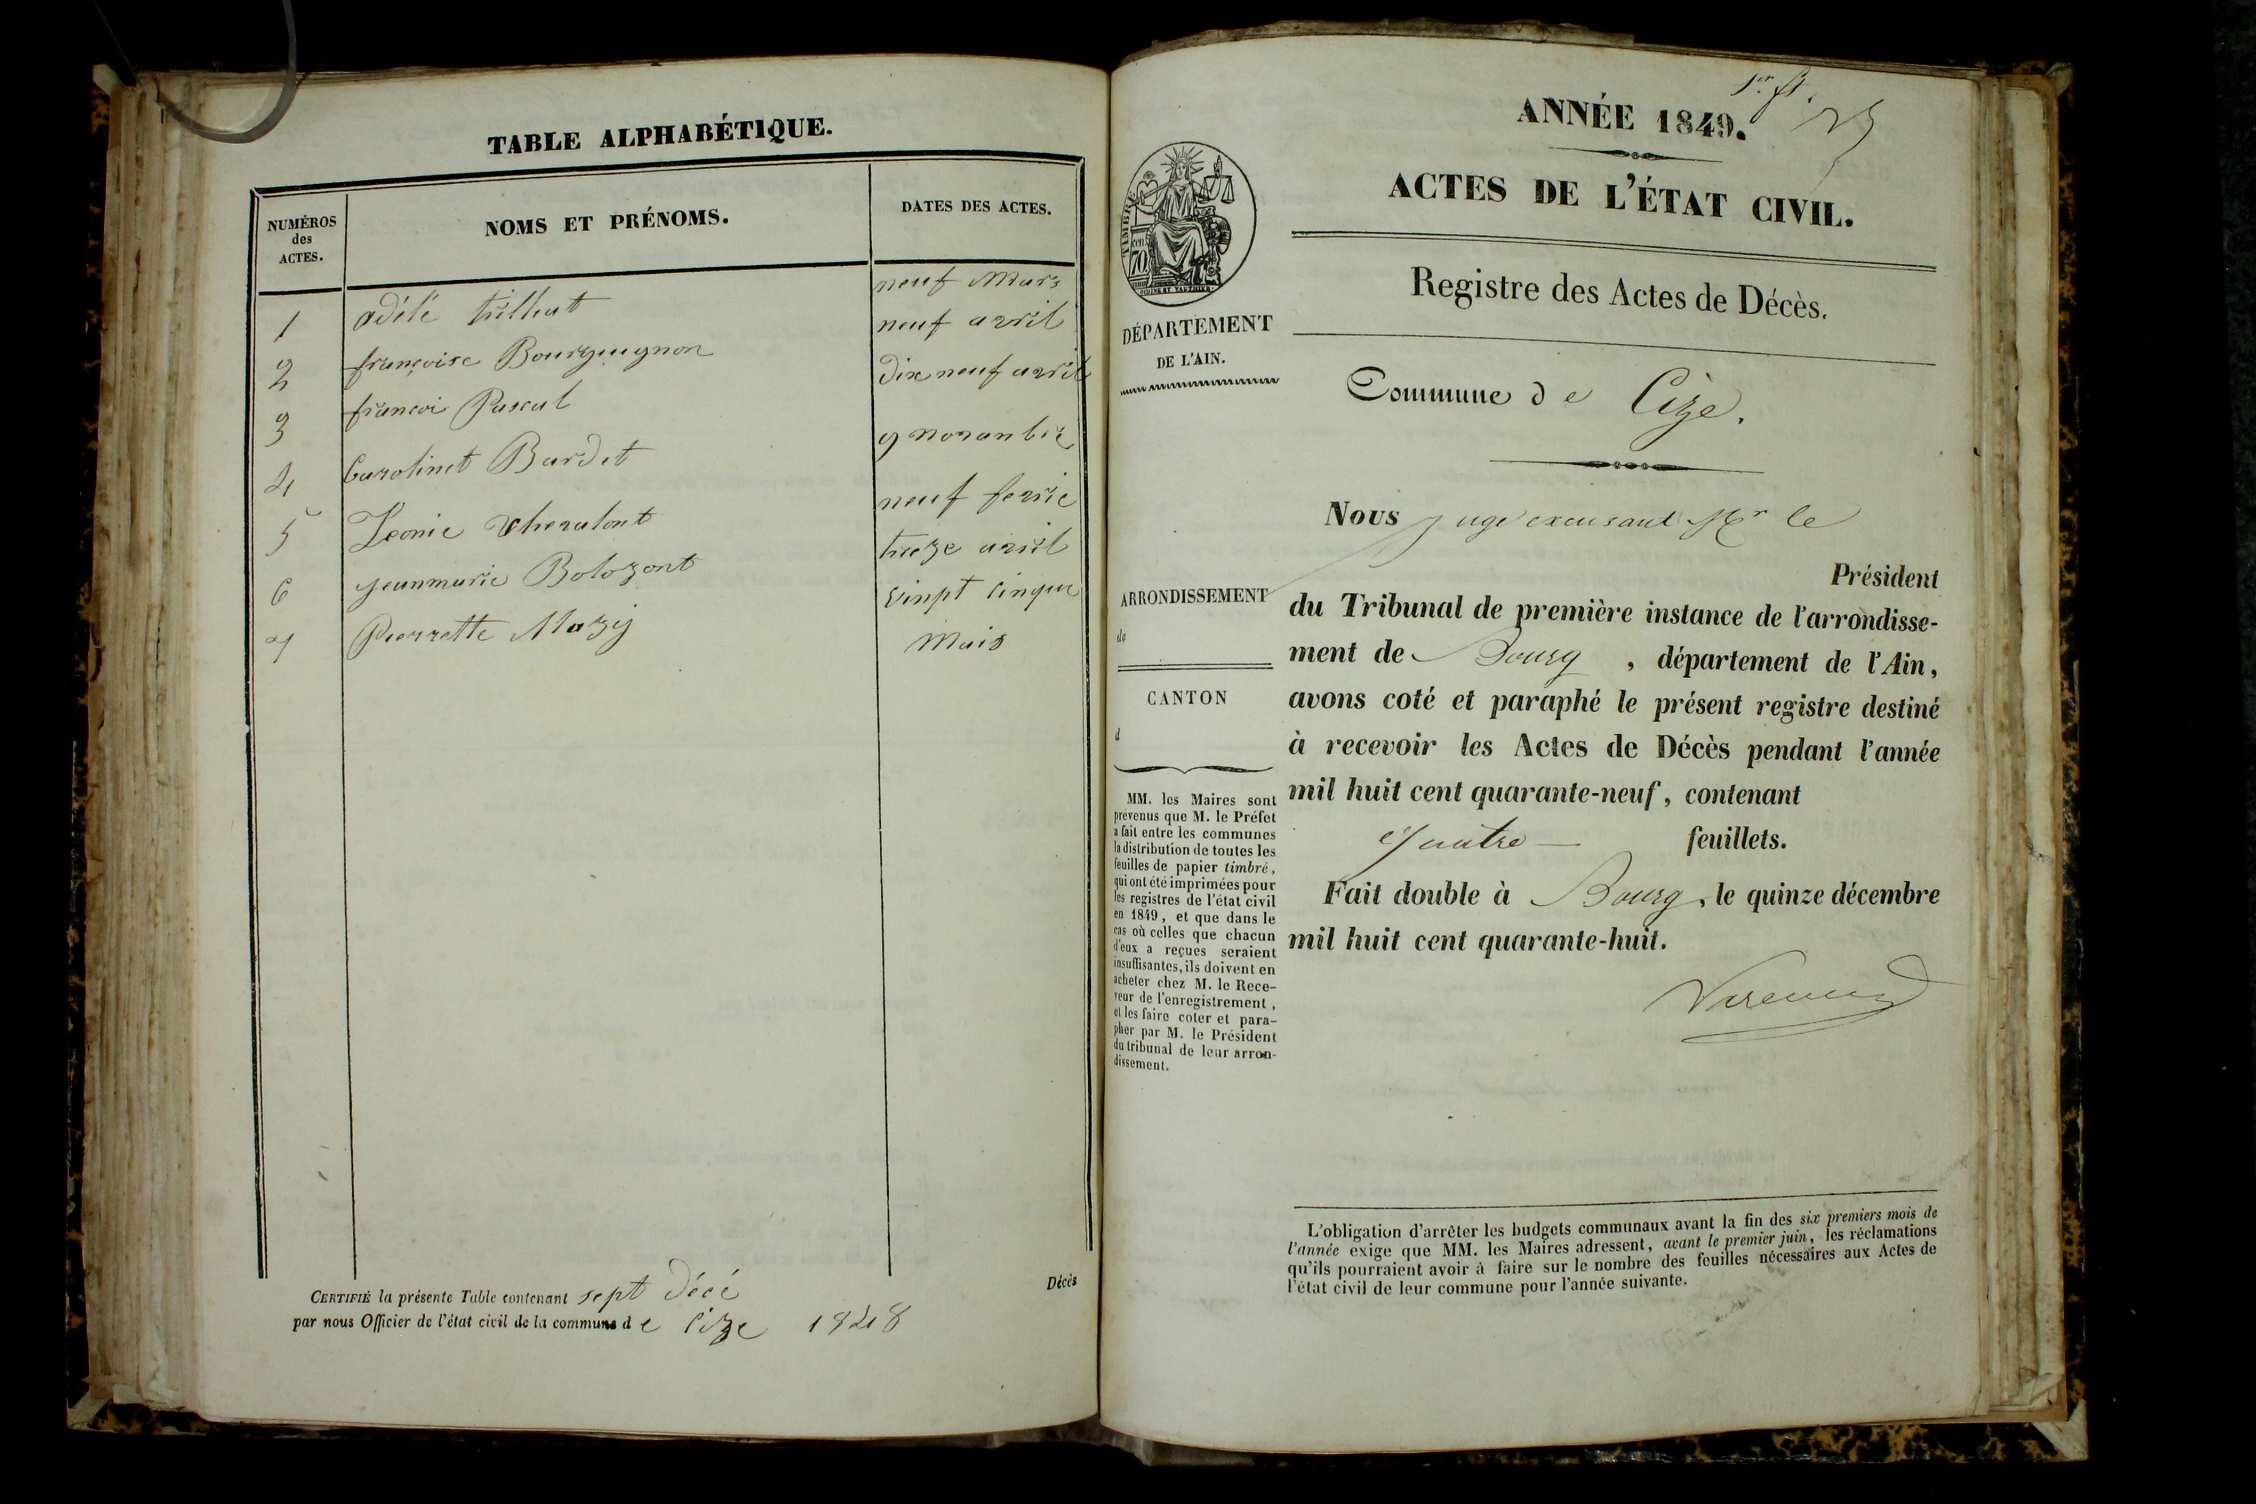 TABLE ALPHABÉTIQUE.
NUMÉROS
des
ACTES.
NOMS ET PRÉNOMS.
DATES DES ACTES.
1 adélé trilleut neuf Mars
2 françoise Bourguignon neuf avril
3 françoi Pascal dix neuf avril
4 Carolinet Bardet 9 novanbre
5 Leonie neuf
6 jeanmarie Bolozont treze avril
7 Pierrette Mazij vinpt cinque
Mais
CERTIFIÉ la présente Table contenant sept décé Décès
par nous Officier de l'état civil de la commune de Cize 1848
1er f.
ANNÉE 1849.
ACTES DE L'ÉTAT CIVIL.
Registre des Actes de Décès.
TIMBRE
70
DÉPARTEMENT
DE L'AIN.
Commune de Cize.
Nous juge excusant Mr le
Président
du Tribunal de première instance de l'arrondisse-
ment de Bourg, département de l'Ain,
avons coté et paraphé le présent registre destiné
à recevoir les Actes de Décès pendant l'année
mil huit cent quarante-neuf, contenant
quatre feuillets.
Fait double à Bourg, le quinze décembre
mil huit cent quarante-huit.
ARRONDISSEMENT
de
CANTON
d
MM. les Maires sont
prévenus que M. le Préfet
a fait entre les communes
la distribution de toutes les
feuilles de papier timbré,
qui ont été imprimées pour
les registres de l'état civil
en 1849, et que dans le
cas où celles que chacun
d'eux a reçues seraient
insuffisantes, ils doivent en
acheter chez M. le Rece-
veur de l'enregistrement,
et les faire coter et para-
pher par M. le Président
du tribunal de leur arron-
dissement.
L'obligation d'arrêter les budgets communaux avant la fin des six premiers mois de
l'année exige que MM. les Maires adressent, avant le premier juin, les réclamations
qu'ils pourraient avoir à faire sur le nombre des feuilles nécessaires aux Actes de
l'état civil de leur commune pour l'année suivante.